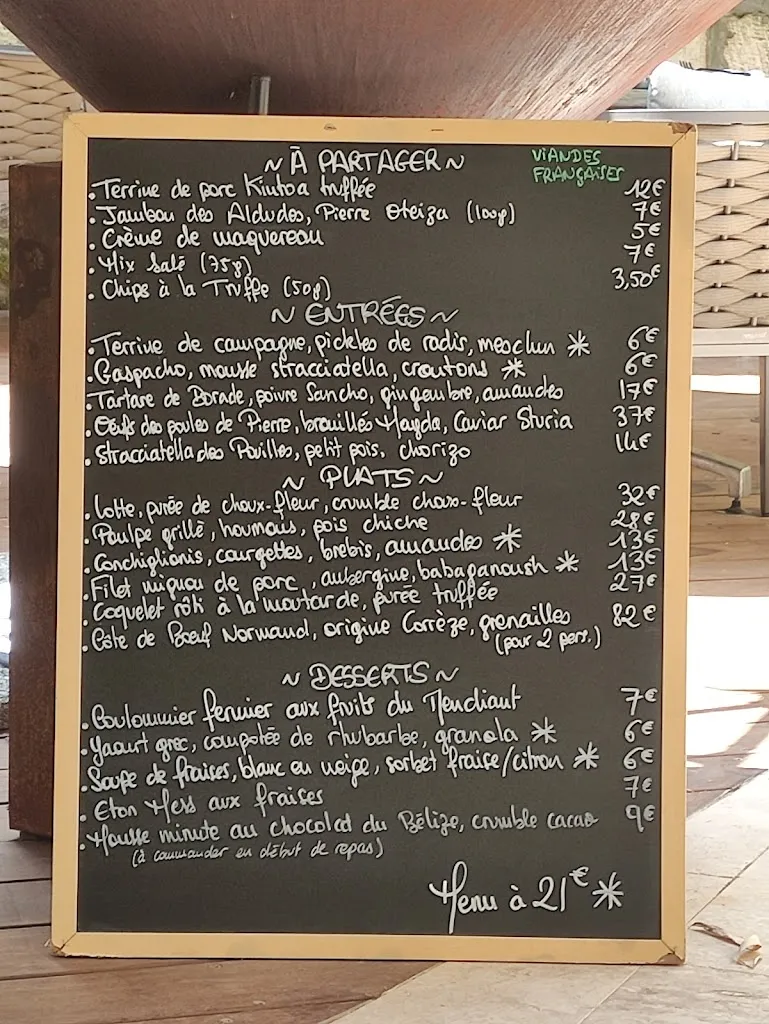 ~ À PARTAGER ~
VIANDES
FRANÇAISES
. Terrine de porc Kintoa truffée 12€
. Jambon des Aldudes, Pierre Oteiza (100g) 7€
. Crème de maquereau 5€
. Mix Salé (75g) 7€
. Chips à la Truffe (50g) 3,50€
~ ENTRÉES ~
. Terrine de campagne, pickles de radis, mesclun * 6€
. Gaspacho, mousse stracciatella, croutons * 6€
. Tartare de Dorade, poivre Sancho, gingembre, amandes 17€
. Oeufs des poules de Pierre, brouillés Mayda, Caviar Sturia 37€
. Stracciatella des Pouilles, petit pois, chorizo 14€
~ PLATS ~
. Lotte, purée de choux-fleur, crumble choux-fleur 32€
. Poulpe grillé, houmous, pois chiche 28€
. Conchiglionis, courgettes, brebis, amandes * 13€
. Filet mignon de porc, aubergine, babaganoush * 13€
. Coquelet rôti à la moutarde, purée truffée 27€
. Côte de Boeuf Normand, origine Corrèze, grenailles 82€
(pour 2 pers.)
~ DESSERTS ~
. Coulommier fermier aux fruits du Mendiant 7€
. Yaourt grec, compotée de rhubarbe, granola * 6€
. Soupe de fraises, blanc en neige, sorbet fraise/citron * 6€
. Eton Mess aux fraises 7€
. Mousse minute au chocolat du Bélize, crumble cacao 9€
(à commander en début de repas)
Menu à 21€ *